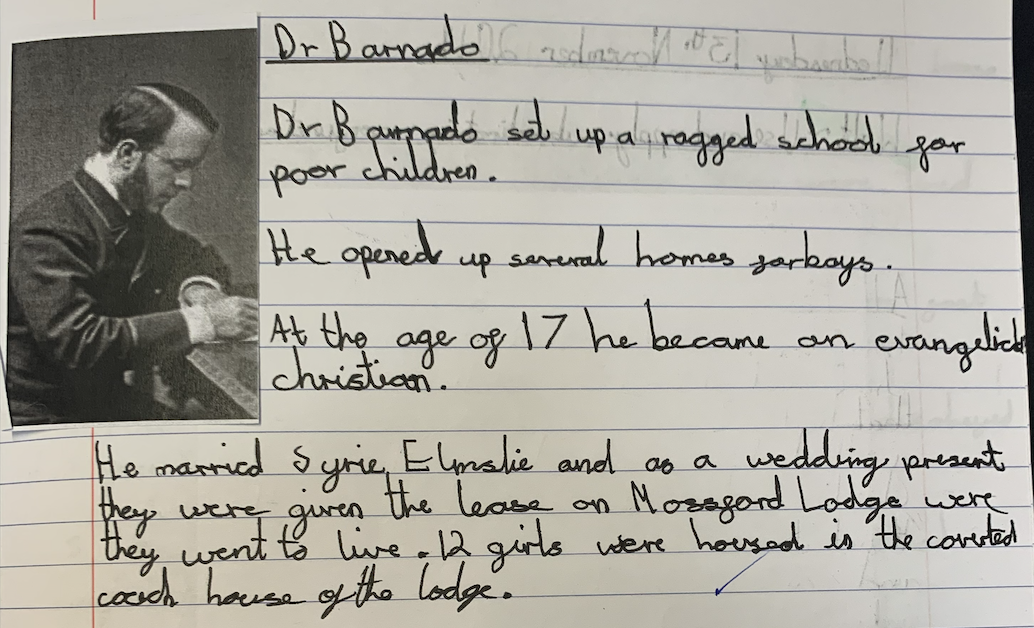 Dr Barnado
Dr Barnado set up a ragged school for
poor children.
He opened up several homes forboys.
At the age of 17 he became an evangelich
christian.
He married Syrie Elmslie and as a wedding present
they were given the lease on Mossford Lodge were
they went to live. 12 girls were housed in the coverted
coach house of the lodge.